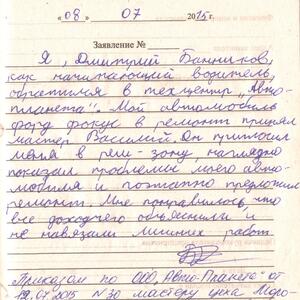 «08» 07 2015 г.
Заявление №
Я, Дмитрий Банников,
как начинающий водитель,
обратился в техцентр „Авто-
планета". Мой автомобиль
форд фокус в ремонт принял
мастер Василий. Он пригласил
меня в рем-зону, наглядно
показал проблемы моего авто-
мобиля и поэтапно предложил
ремонт. Мне понравилось, что
все доходчего объяснили и
не навязали лишних работ.
Приказом по ООО „Авто-Планета" от
07.2015 №30 мастеру цеха